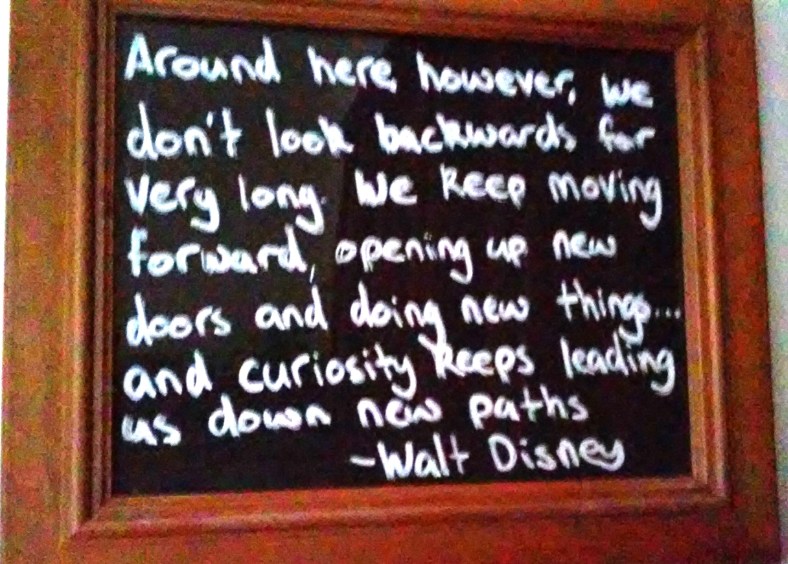 Around here, however, we
don't look backwards for
very long. We keep moving
forward, opening up new
doors and doing new things...
and curiosity keeps leading
us down new paths
-Walt Disney